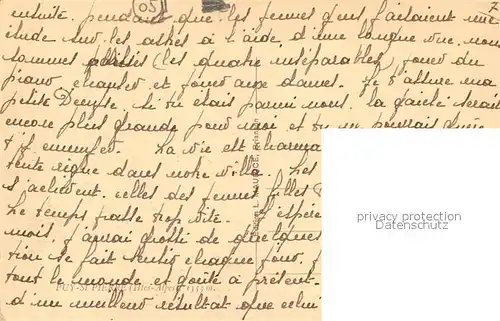 ensuite, pendant que les jeunes gens faisaient une
étude sur les astres à l'aide d'une longue vue, nous
sommes allées (les quatre inséparables) jouer du
piano, chanter et jouer aux dames. Je t'assure ma
petite Denyse, si tu étais parmi nous, la gaieté serait
encore plus grande pour moi et tu ne pourrais guère
t'y ennuyer. La vie est charmante
règne dans notre villa. Les
s'achèvent, celles des jeunes filles
Le temps passe trop vite. J'espère
mois, j'aurai grossi de quelques
tion se fait sentir chaque jour,
tout le monde et goûte à présent
d'un meilleur résultat que celui
05
7
PUY-ST-PIERRE (Htes-Alpes) 1535 m.
privacy protection
Datenschutz